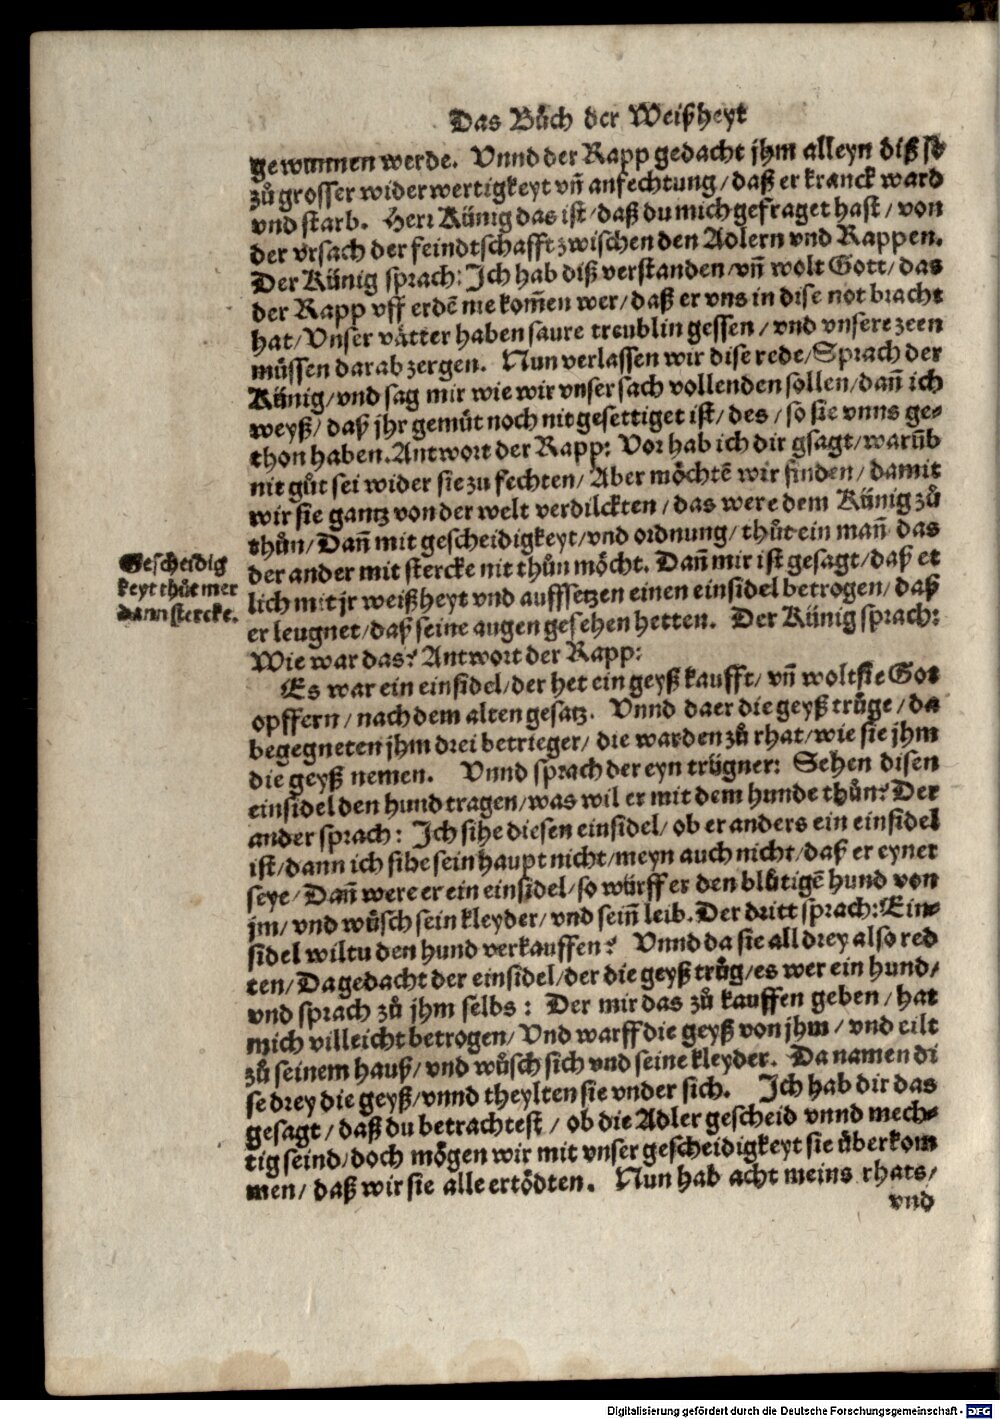 Das Bůch der Weißheyt
gewunnen werde. Vnnd der Rapp gedacht jhm alleyn diß so
zů grosser widerwertigkeyt vñ anfechtung/ daß er kranck ward
vnd starb. Herr Künig das ist/ daß du mich gefraget hast/ von
der vrsach der feindtschafft zwischen den Adlern vnd Rappen.
Der Künig sprach: Ich hab diß verstanden/ vñ wolt Gott/ das
der Rapp vff erdē nie kom̃en wer/ daß er vns in dise not bracht
hat/ Vnser vätter haben saure treublin gessen/ vnd vnsere zeen
müssen darab zergen. Nun verlassen wir dise rede/ Sprach der
Künig/ vnd sag mir wie wir vnser sach vollenden sollen/ dañ ich
weyß/ daß jhr gemüt noch nit gesettiget ist/ des/ so sie vnns ge-
thon haben. Antwort der Rapp: Vor hab ich dir gsagt/ warũb
nit gůt sei wider sie zu fechten/ Aber möchtē wir finden/ damit
wir sie gantz von der welt verdilckten/ das were dem Künig zů
thůn/ Dañ mit gescheidigkeyt/ vnd ordnung/ thůt ein mañ das
der ander mit stercke nit thůn möcht. Dañ mir ist gesagt/ daß et
Gescheidig
keyt thůt mer
dann stercke.
lich mit jr weißheyt vnd auffsetzen einen einsidel betrogen/ daß
er leugnet/ daß seine augen gesehen hetten. Der Künig sprach:
Wie war das? Antwort der Rapp:
Es war ein einsidel/ der het ein geyß kaufft/ vñ wolt sie Got
opffern/ nach dem alten gesatz. Vnnd da er die geyß trůge/ da
begegneten jhm drei betrieger/ die warden zů rhat/ wie sie jhm
die geyß nemen. Vnnd sprach der eyn trügner: Sehen disen
einsidel den hund tragen/ was wil er mit dem hunde thůn? Der
ander sprach: Ich sihe diesen einsidel/ ob er anders ein einsidel
ist/ dann ich sihe sein haupt nicht/ meyn auch nicht/ daß er eyner
seye/ Dañ were er ein einsidel/ so würff er den blůtigē hund von
jm/ vnd wůsch sein kleyder/ vnd seiñ leib. Der dritt sprach: Ein-
sidel wiltu den hund verkauffen? Vnnd da sie all drey also red
ten/ Da gedacht der einsidel/ der die geyß trůg/ es wer ein hund/
vnd sprach zů jhm selbs: Der mir das zů kauffen geben/ hat
mich villeicht betrogen/ Vnd warff die geyß von jhm/ vnd eilt
zů seinem hauß/ vnd wůsch sich vnd seine kleyder. Da namen di
se drey die geyß/ vnnd theylten sie vnder sich. Ich hab dir das
gesagt/ daß du betrachtest/ ob die Adler gescheid vnnd mech-
tig seind/ doch mögen wir mit vnser gescheidigkeyt sie überkom
men/ daß wir sie alle ertödten. Nun hab acht meins rhats/
vnd
Digitalisierung gefördert durch die Deutsche Forschungsgemeinschaft - DFG